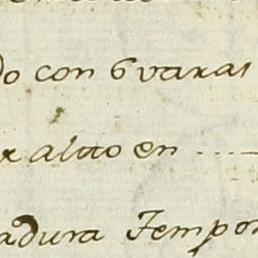 do con 6 varas
r altto en
adura Tempo